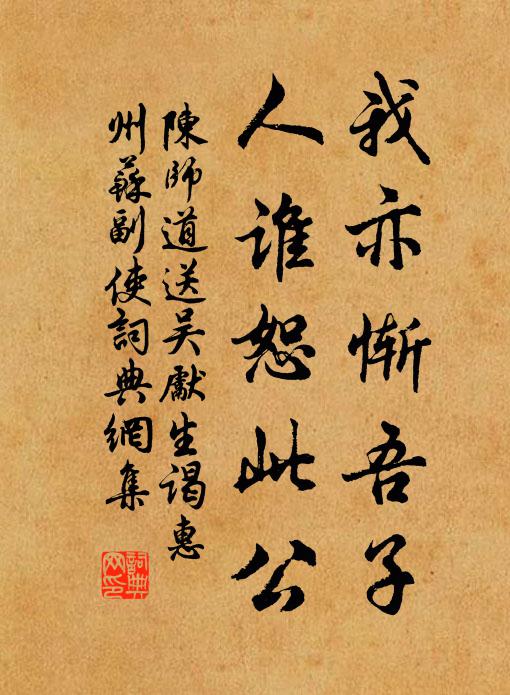 我亦慚吾子
人誰恕此公
陳師道送吳獻生謁惠
州蘇副使詞典網集
詞典网印